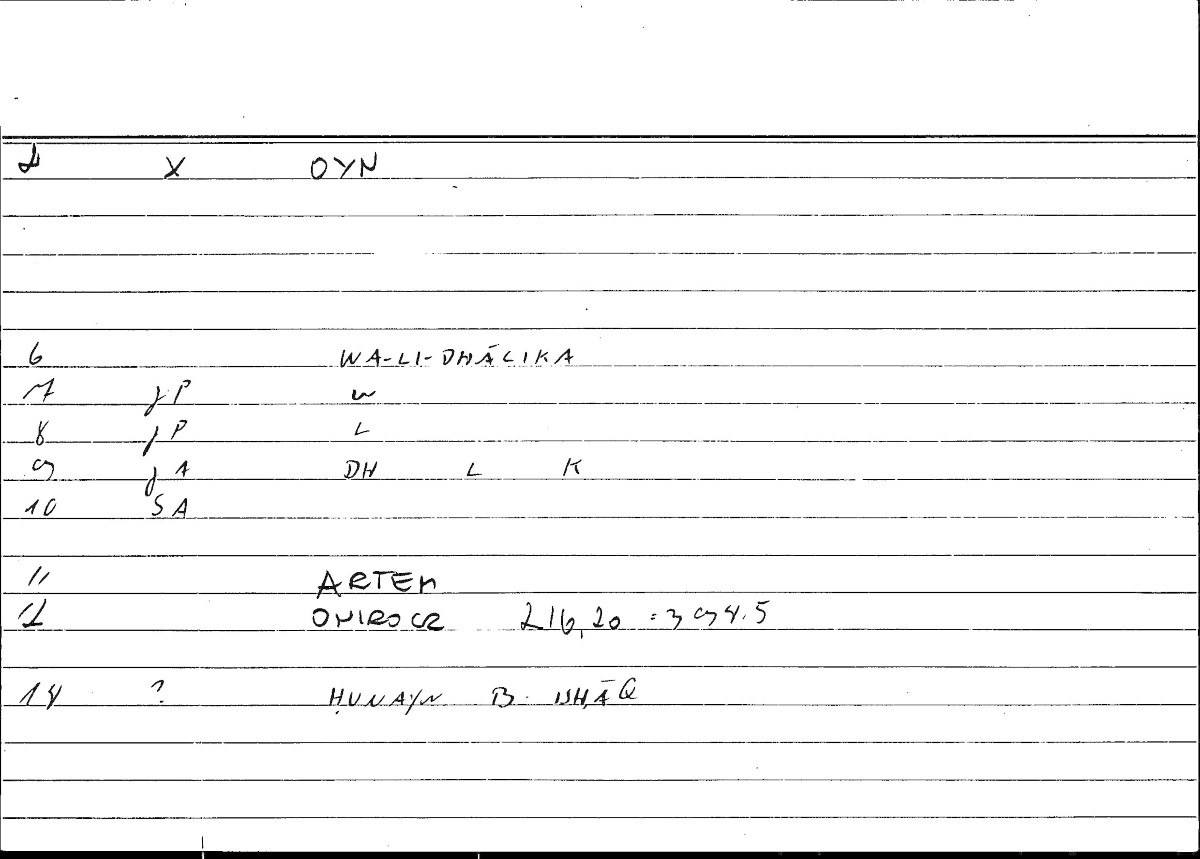 2 X OYN
6 WA-LI-DHĀLIKA
7 jP W
8 jP L
9 jA DH L K
10 SA
11 ARTEM
12 ONIROCR 216,20 = 394.5
14 ? ḤUNAYN B. ISḤĀQ